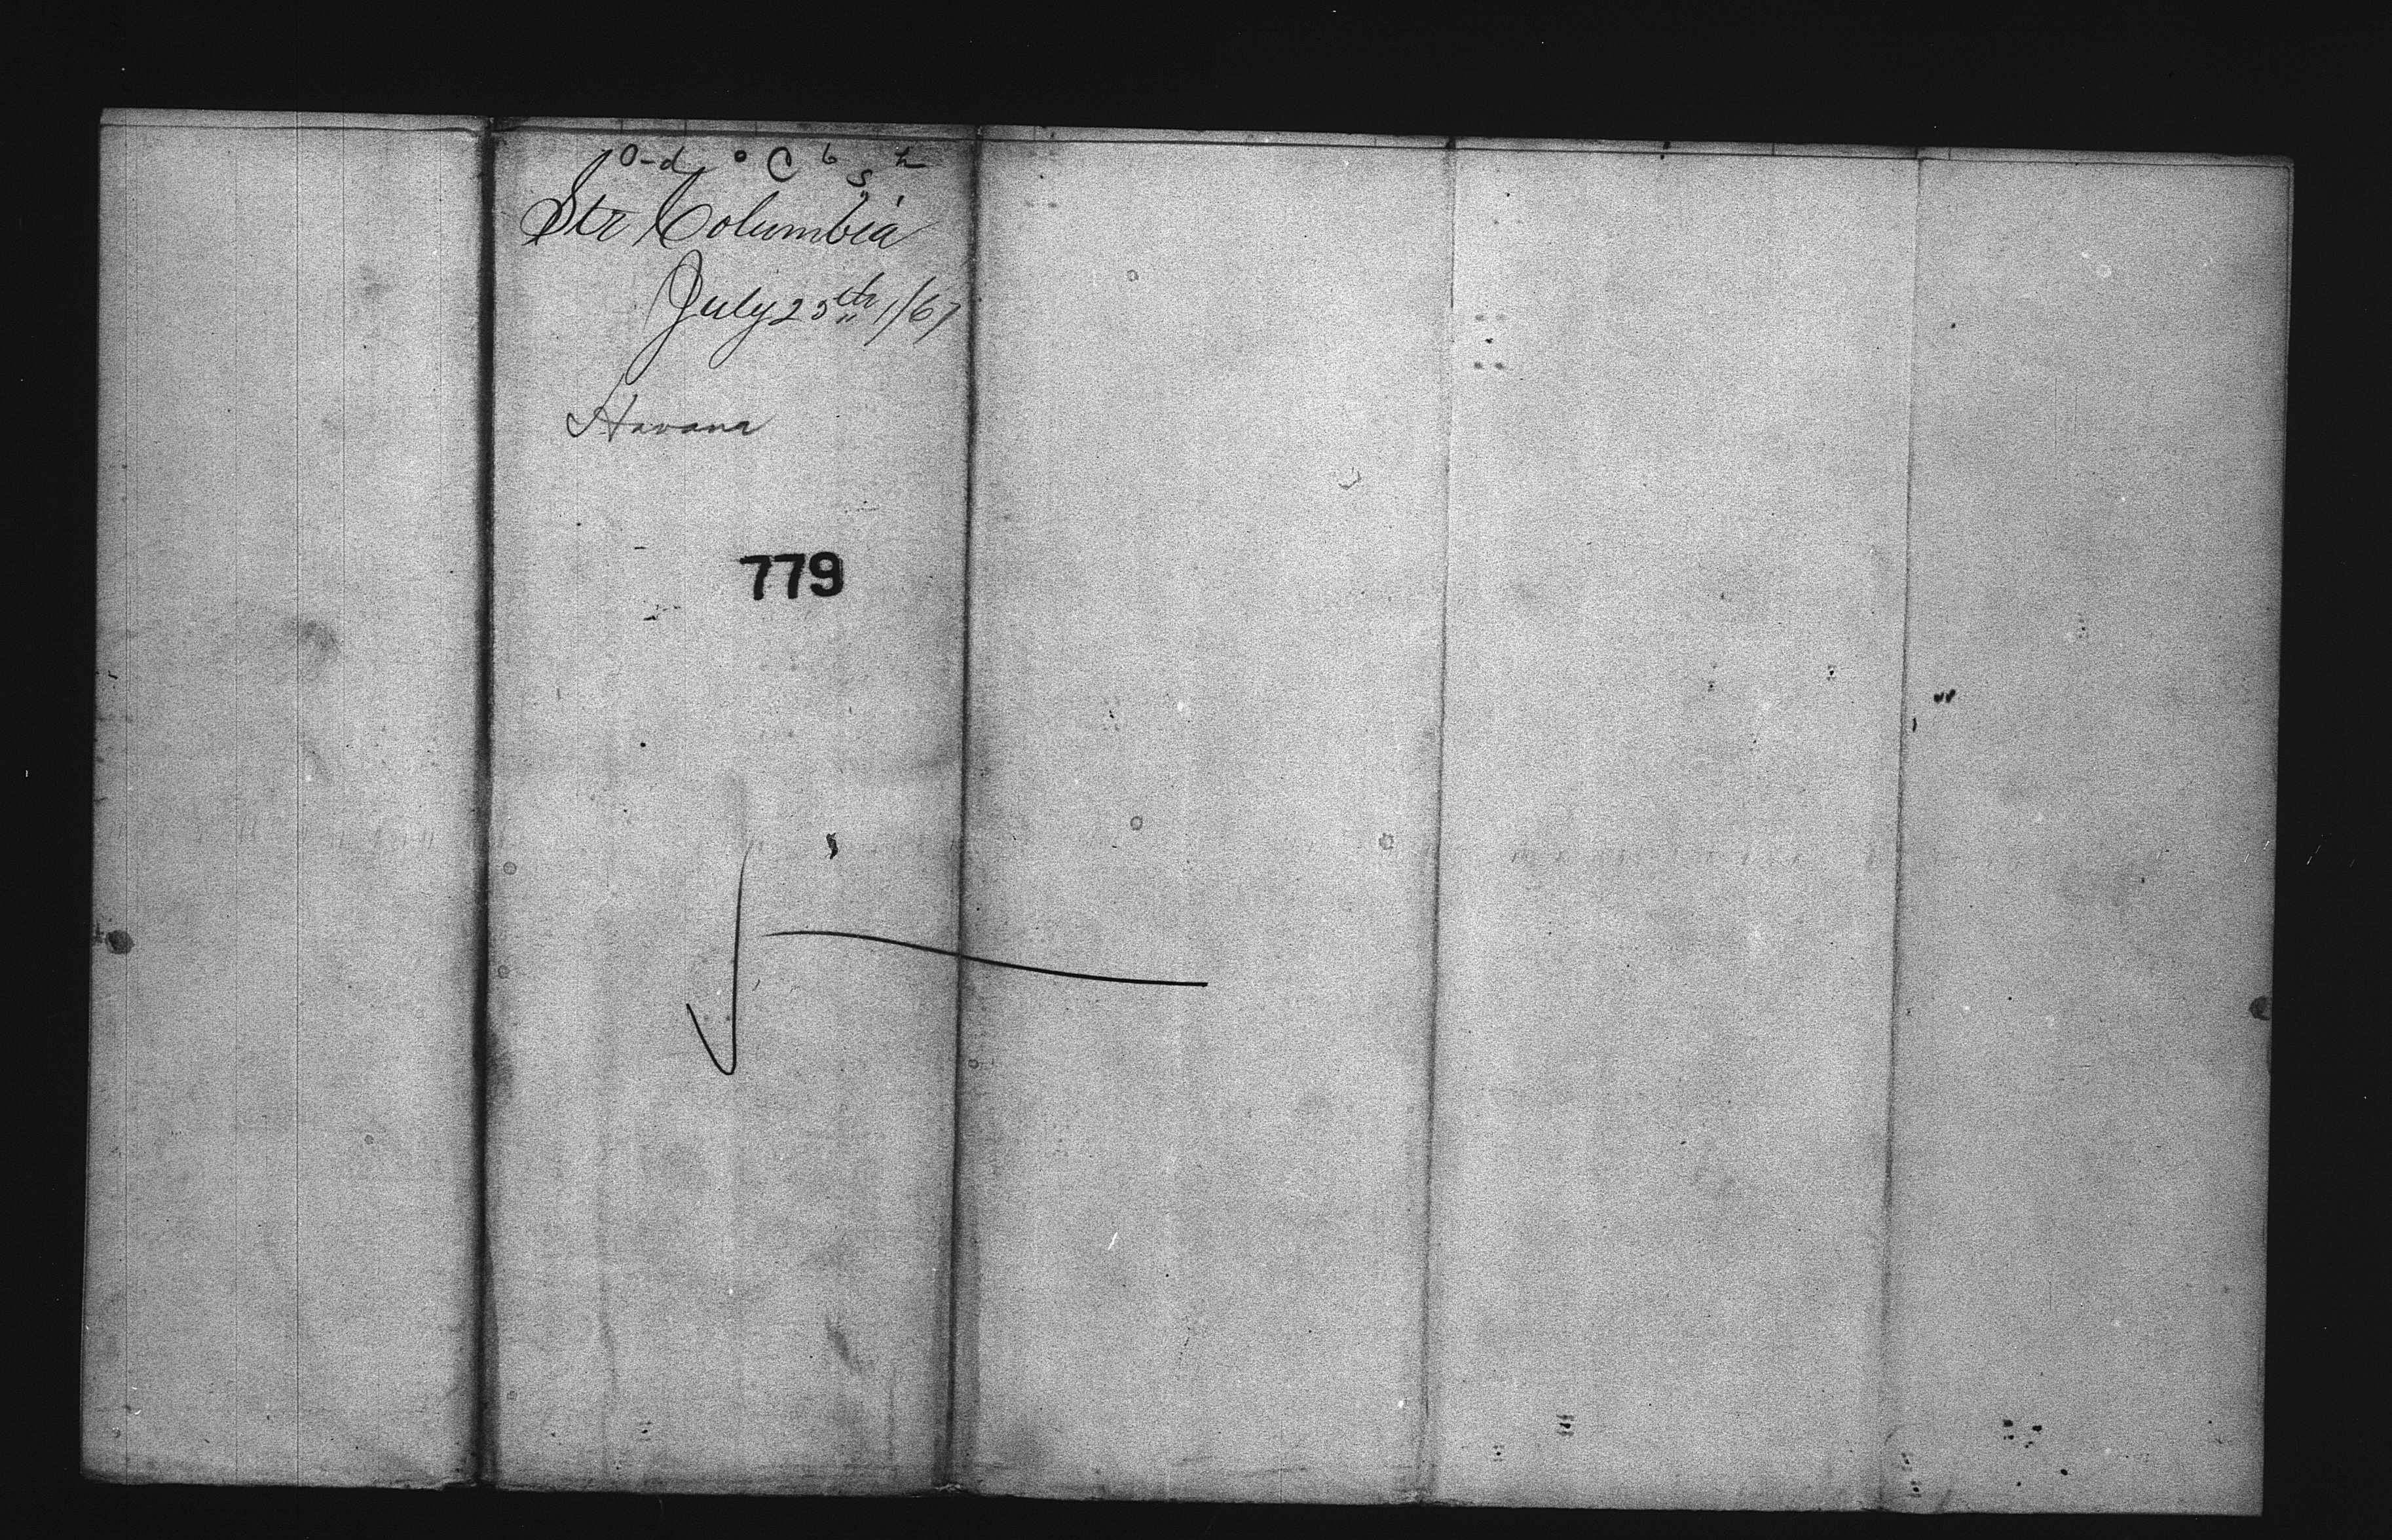 Str Columbia
July 25th 1/67
Havana
779